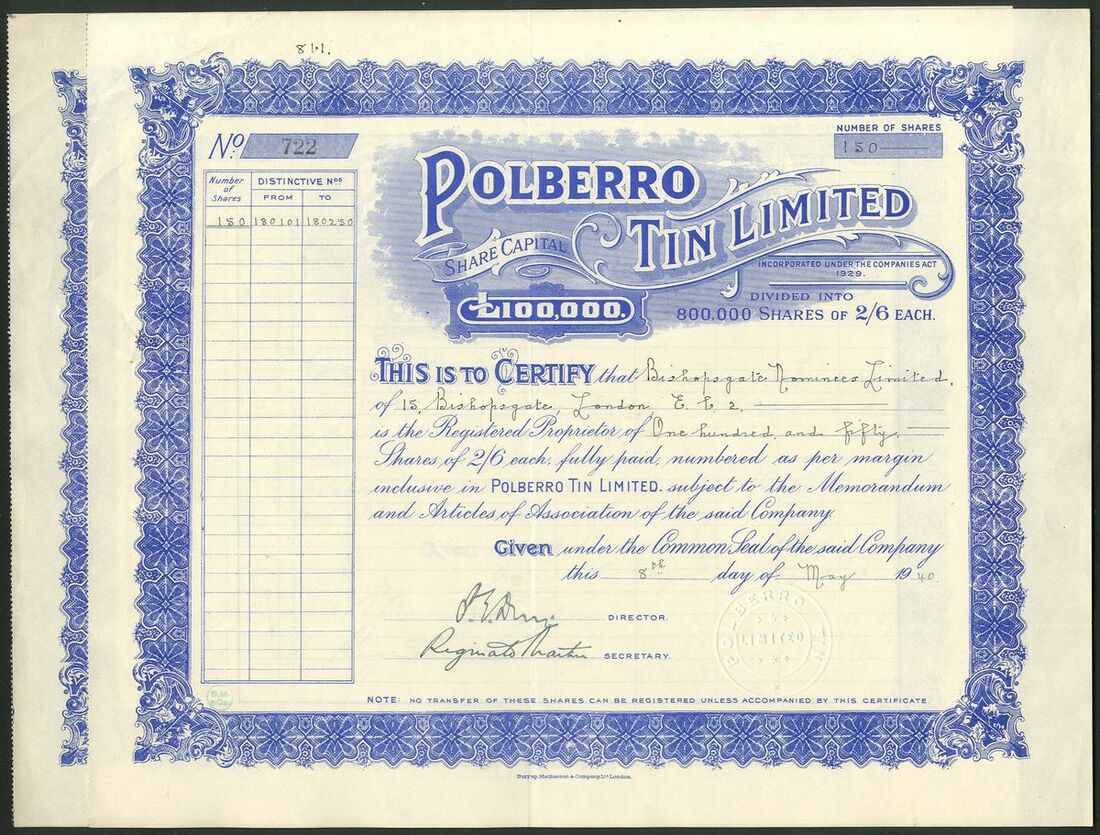 811.
No. 722
NUMBER OF SHARES
150
Number of Shares DISTINCTIVE Nos FROM TO
150 180101 180250
POLBERRO
TIN LIMITED
SHARE CAPITAL
£100,000.
INCORPORATED UNDER THE COMPANIES ACT
1929.
DIVIDED INTO
800,000 SHARES OF 2/6 EACH.
THIS IS TO CERTIFY that Bishopsgate Nominees Limited.
of 15, Bishopsgate, London E.C.2.
is the Registered Proprietor of One hundred and fifty.
Shares of 2/6 each, fully paid, numbered as per margin
inclusive in POLBERRO TIN LIMITED. subject to the Memorandum
and Articles of Association of the said Company
Given under the Common Seal of the said Company
this 8th day of May 1940.
DIRECTOR.
Reginald Martin SECRETARY.
POLBERRO TIN
LIMITED
NOTE: NO TRANSFER OF THESE SHARES CAN BE REGISTERED UNLESS ACCOMPANIED BY THIS CERTIFICATE.
Burrup, Mathieson & Company, Ltd London.